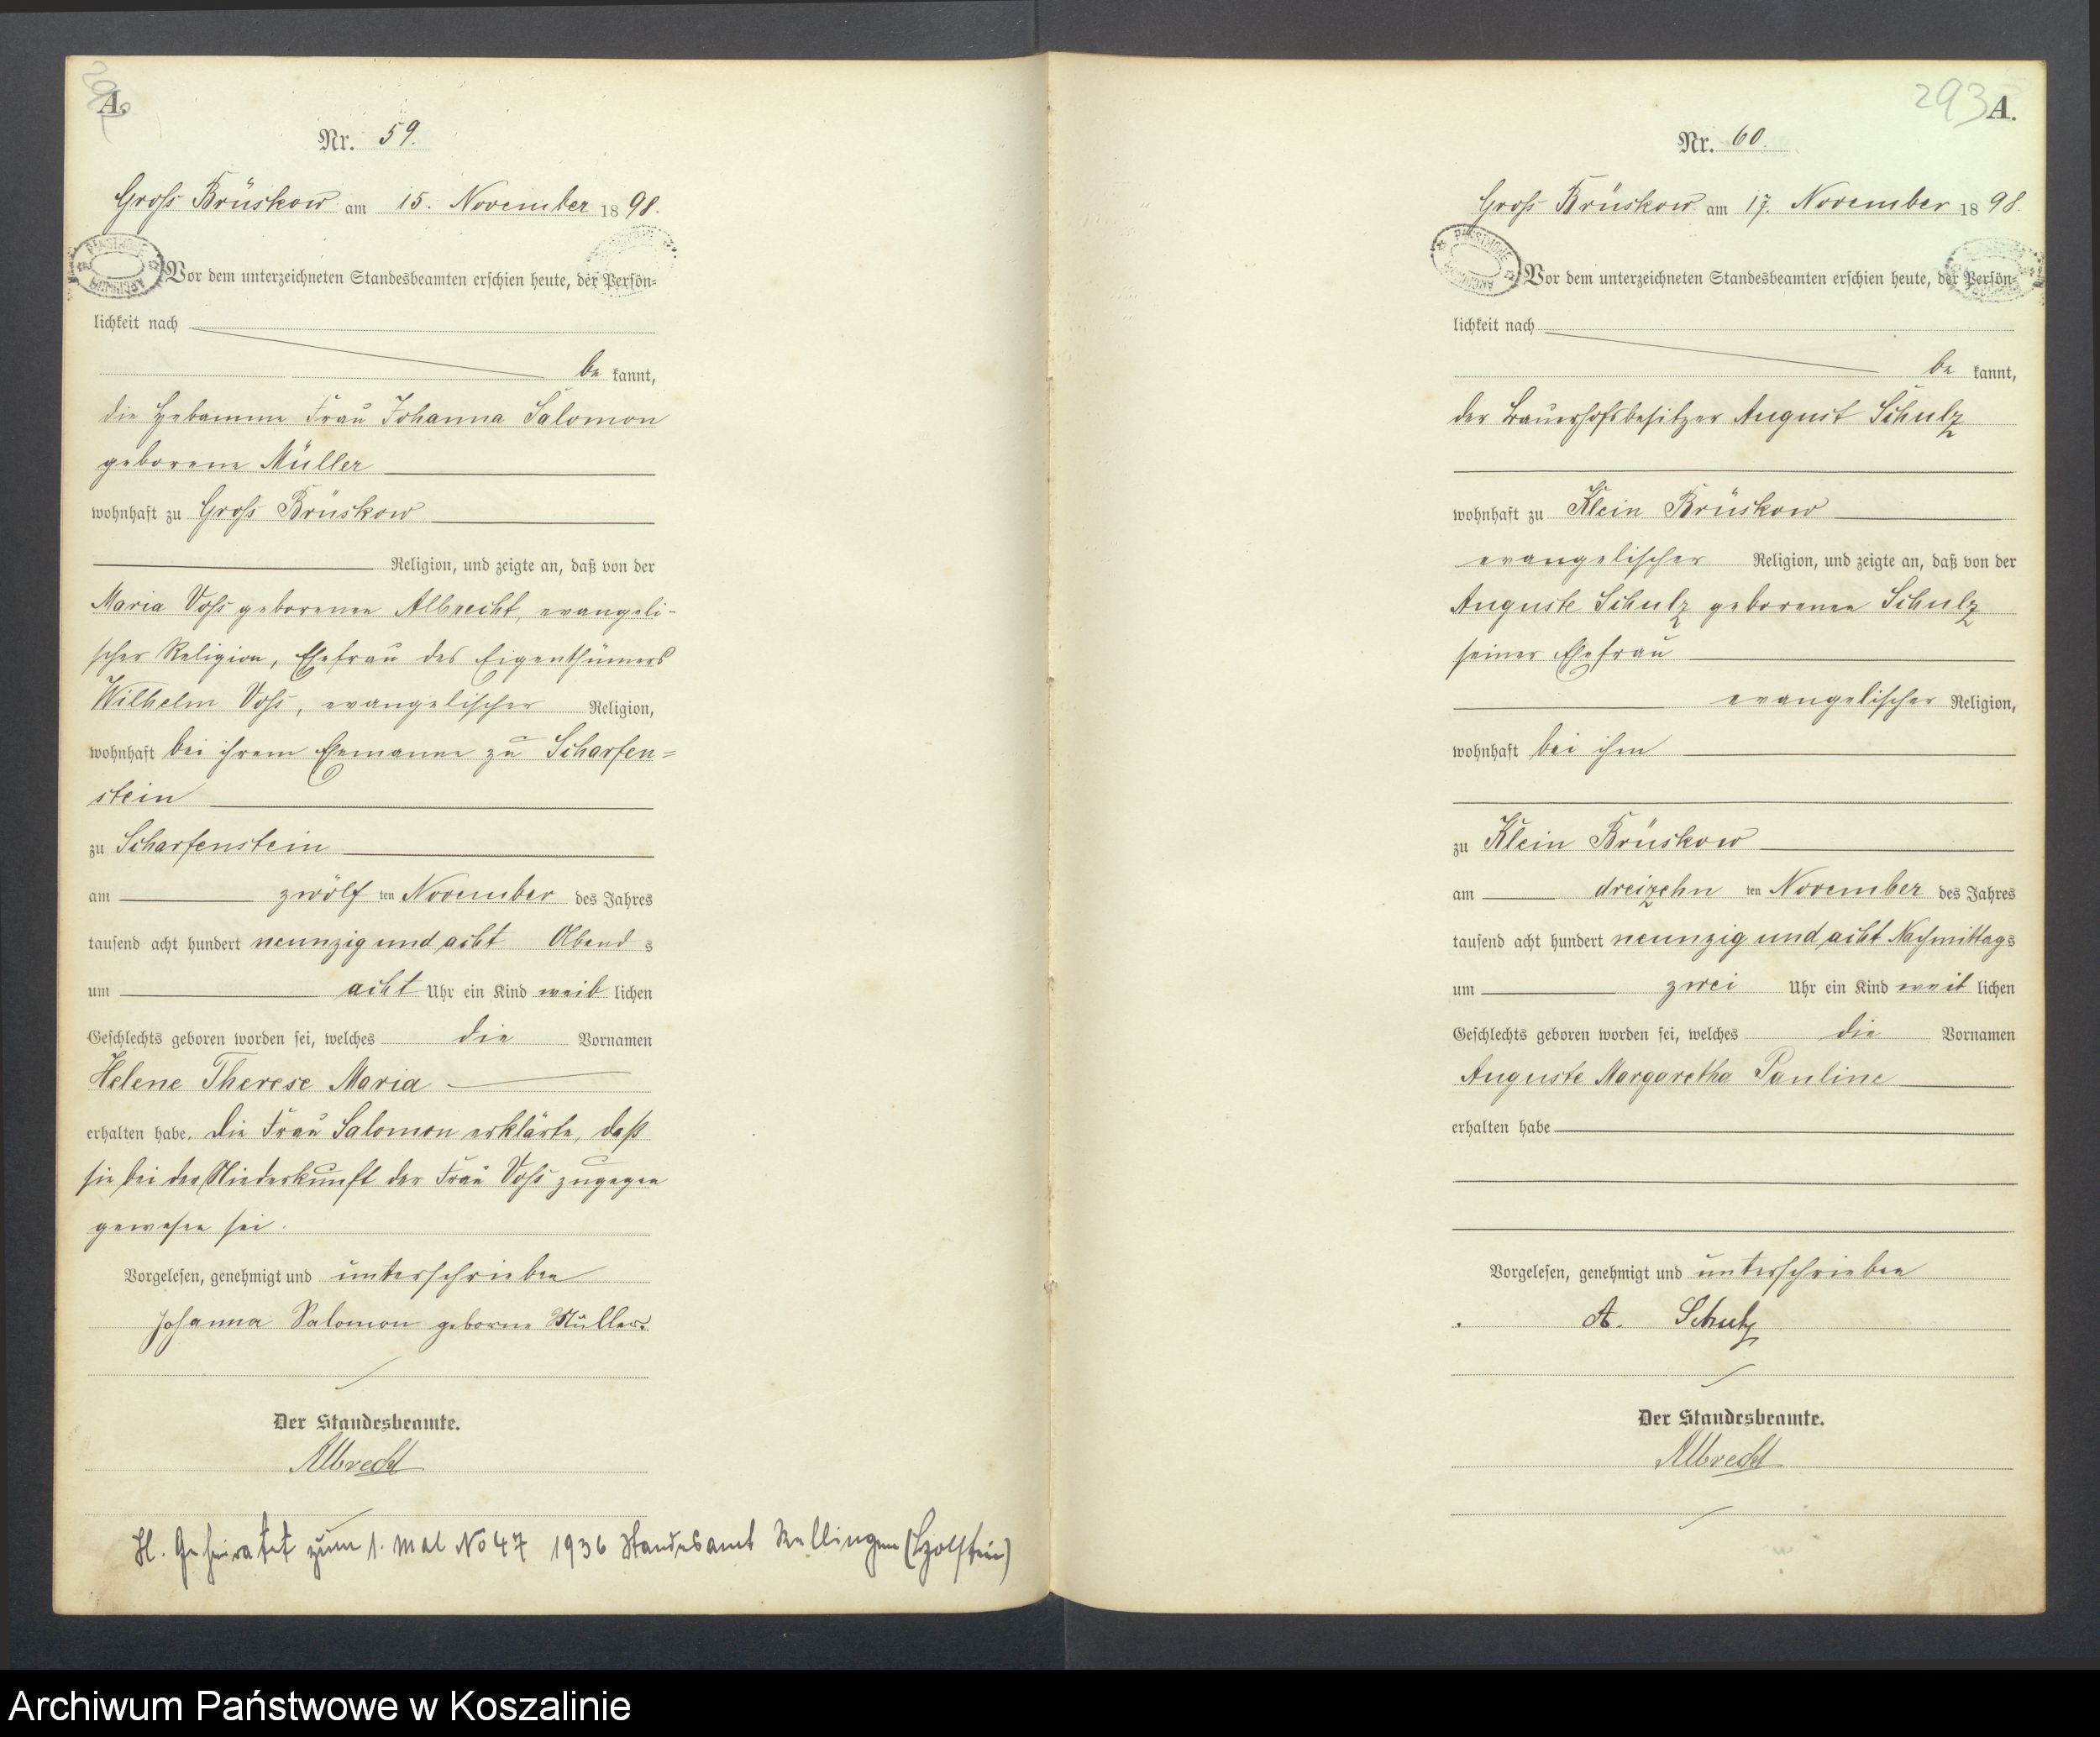 A.
Nr. 59.
Gross Brüskow am 15. November 1898.
Vor dem unterzeichneten Standesbeamten erschien heute, der Persön-
lichkeit nach
be kannt,
die Hebamme Frau Johanna Salomon
geborene Müller
wohnhaft zu Gross Brüskow
Religion, und zeigte an, daß von der
Maria Voss geborenen Albrecht, evangeli-
scher Religion, Ehefrau des Eigenthümers
Wilhelm Voss, evangelischer Religion,
wohnhaft bei ihrem Ehemanne zu Scharfen=
stein
zu Scharfenstein
am zwölf ten November des Jahres
tausend acht hundert neunzig und acht Abends
um acht Uhr ein Kind weiblichen
Geschlechts geboren worden sei, welches die Vornamen
Helene Therese Maria
erhalten habe. Die Frau Salomon erklärte, daß
sie bei der Niederkunft der Frau Voss zugegen
gewesen sei.
Vorgelesen, genehmigt und unterschrieben
Johanna Salomon geborne Müller.
Der Standesbeamte.
Albrecht
H. Geheiratet zum 1. mal No 47 1936 Standesamt Rellingen (Holstein)
293 A.
Nr. 60.
Gross Brüskow am 17. November 1898.
Vor dem unterzeichneten Standesbeamten erschien heute, der Persön-
lichkeit nach
be kannt,
der Bauerhofsbesitzer August Schulz
wohnhaft zu Klein Brüskow
evangelischer Religion, und zeigte an, daß von der
Auguste Schulz geborenen Schulz
seiner Ehefrau
evangelischer Religion,
wohnhaft bei ihm
zu Klein Brüskow
am dreizehn ten November des Jahres
tausend acht hundert neunzig und acht Nachmittags
um zwei Uhr ein Kind weiblichen
Geschlechts geboren worden sei, welches die Vornamen
Auguste Margaretha Pauline
erhalten habe
Vorgelesen, genehmigt und unterschrieben
A. Schulz
Der Standesbeamte.
Albrecht
Archiwum Państwowe w Koszalinie